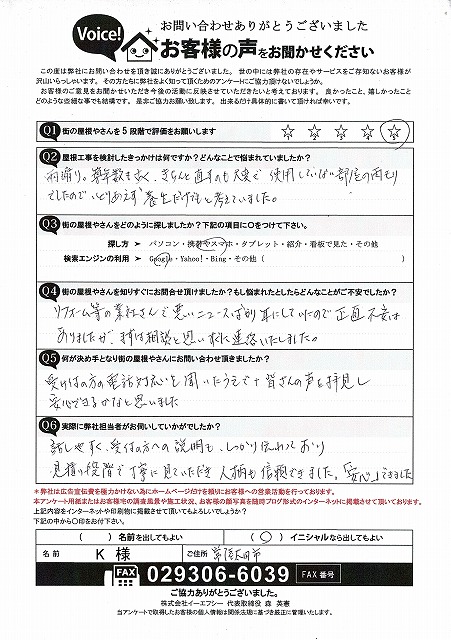 Voice!
お問い合わせありがとうございました
お客様の声をお聞かせください
この度は弊社にお問い合わせを頂き誠にありがとうございます。 世の中には弊社の存在やサービスをご存知ないお客様が
沢山いらっしゃいます。 その方たちに弊社をよく知って頂くためのアンケートにご協力頂けないでしょうか。
お客様のご意見をお聞かせいただき今後の活動に反映させていただきたいと考えております。 良かったこと、嬉しかったこと
どのような些細な事でも結構です。 是非ご協力お願い致します。 出来るだけ具体的に書いて頂ければ幸いです。
Q1 街の屋根やさんを5段階で評価をお願いします ☆ ☆ ☆ ☆ ☆
Q2 屋根工事を検討したきっかけは何ですか？どんなことで悩まれていましたか？
雨漏り。築年数も古く、きちんと直すのも大変で 使用していない部屋の雨もり
でしたので、とりあえず養生だけでもと考えていました。
Q3 街の屋根やさんをどのように探しましたか？下記の項目に〇をつけて下さい。
探し方 > パソコン・携帯やスマホ・タブレット・紹介・看板で見た・その他
検索エンジンの利用 > Google・Yahoo!・Bing・その他（ ）
Q4 街の屋根やさんを知りすぐにお問合せ頂けましたか？もし悩まれたとしたらどんなことがご不安でしたか？
リフォーム等の業社さんで悪いニュースばかり耳にしていたので正直不安は
ありましたが、まずは相談と思いすぐに連絡いたしました。
Q5 何が決め手となり街の屋根やさんにお問い合わせ頂きましたか？
受付の方の電話対応を聞いたうえで、皆さんの声を拝見し
安心できるかなと思いました
Q6 実際に弊社担当者がお伺いしていかがでしたか？
話しやすく、受付の方への説明も、しっかり伝わっており
見積の段階で丁寧に見ていただき人柄も信頼できました。「安心」できました
＊弊社は広告宣伝費を極力かけない為にホームページだけを頼りにお客様への営業活動を行っております。
本アンケート用紙またはお客様宅の調査風景や施工状況、お客様の顔写真を随時ブログ形式のインターネットに掲載させて頂いております。
上記内容をインターネットや印刷物に掲載させて頂いてもよろしいでしょうか？
下記の中から〇印をお付下さい。
（ ）名前を出してもよい （〇）イニシャルなら出してもよい
名前 K 様 ご住所 常陸太田市
FAX 029306-6039 FAX番号
ご協力ありがとうございました。
株式会社イーエフシー 代表取締役 森 英憲
当アンケートで取得したお客様の個人情報は関係法規に基づき厳正に管理いたします。